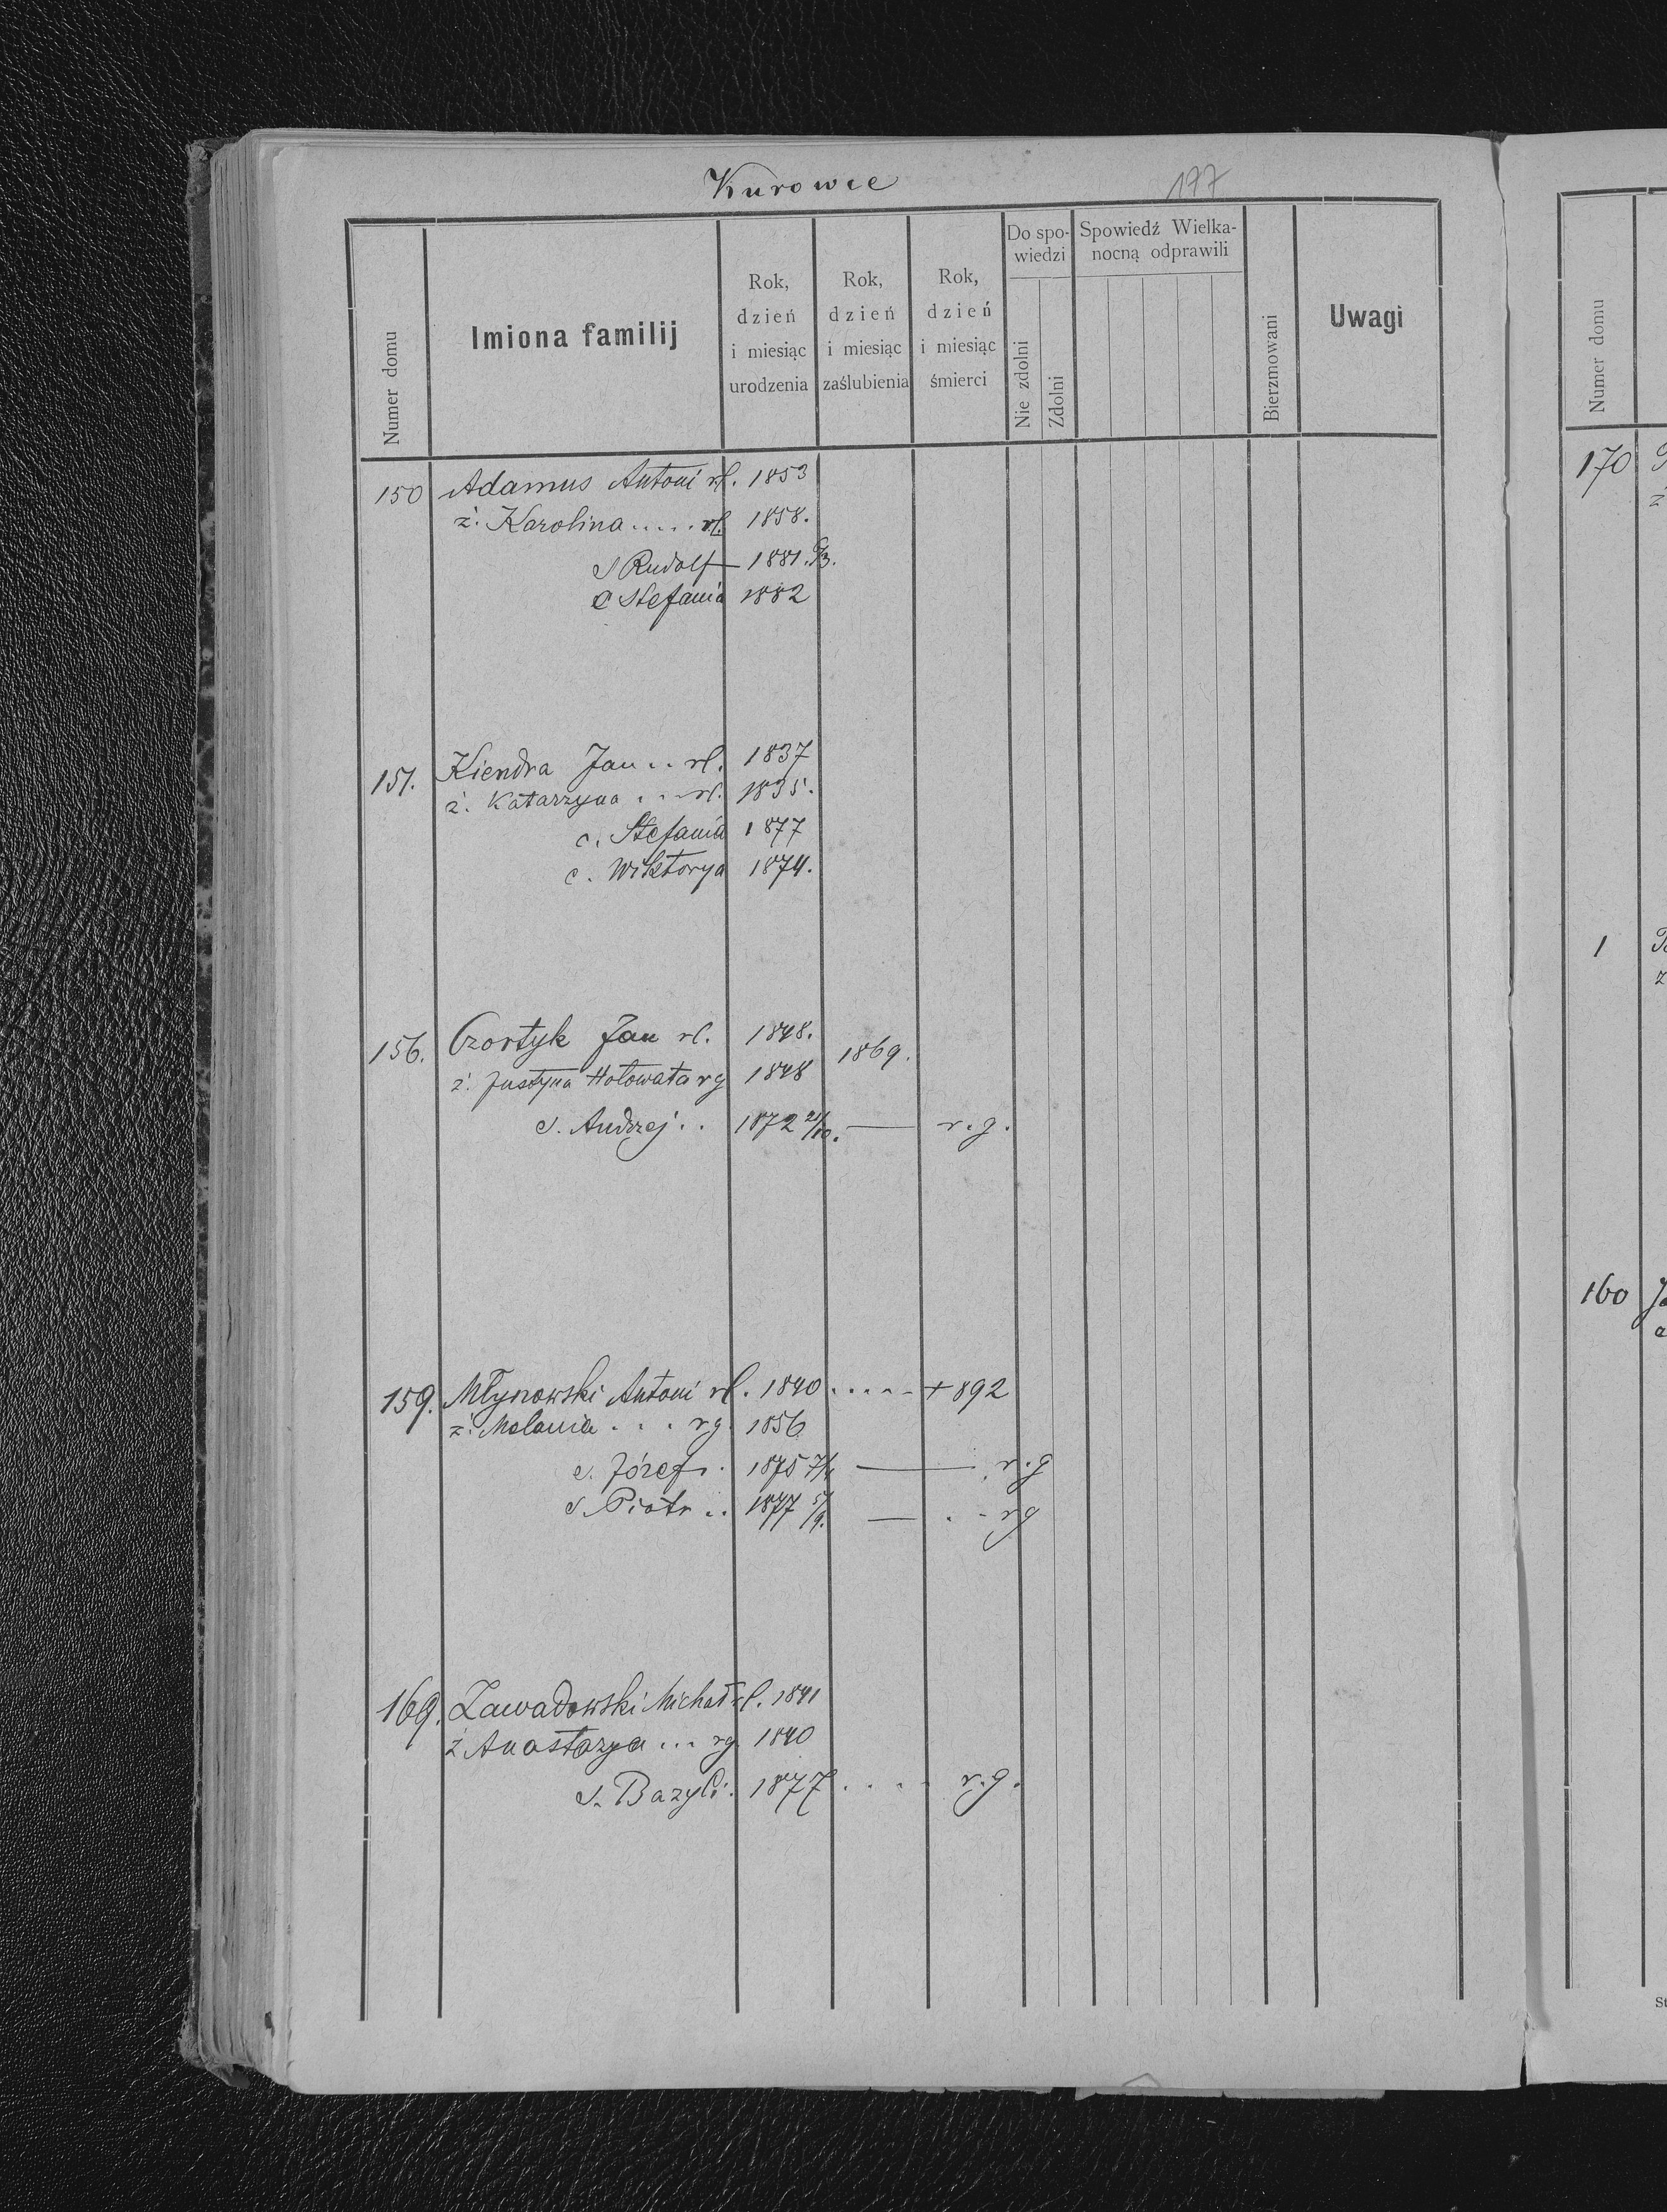 Kurowce 197
Numer domu
Imiona familij
Rok, dzień i miesiąc urodzenia
Rok, dzień i miesiąc zaślubienia
Rok, dzień i miesiąc śmierci
Do spo-
wiedzi
Nie zdolni
Zdolni
Spowiedź Wielka-
nocną odprawili
Bierzmowani
Uwagi
150 Adamus Antoni rł. 1853
ż. Karolina ..... rł. 1858.
S Rudolf 1881.
C Stefania 1882
151. Kiendra Jan .. rł. 1837
ż. Katarzyna ... rł. 1835.
c. Stefania 1877
c. Wiktorya 1874.
156. Czortyk Jan rł. 1848. 1869.
ż. Justyna Hołowata rg 1848
s. Andrzej .. 1872 21/10. — r.g.
159. Młynowski Antoni rł. 1840 ..... + 892
ż. Melania .... rg. 1856
s. Józef . 1875 — r.g
s. Piotr .. 1877 5/9. — . - rg
169. Zawadowski Michał rł. 1841
ż Anastazya ... rg 1840
s. Bazyli . 1877 .... r.g.
Numer domu
170
1
160
St